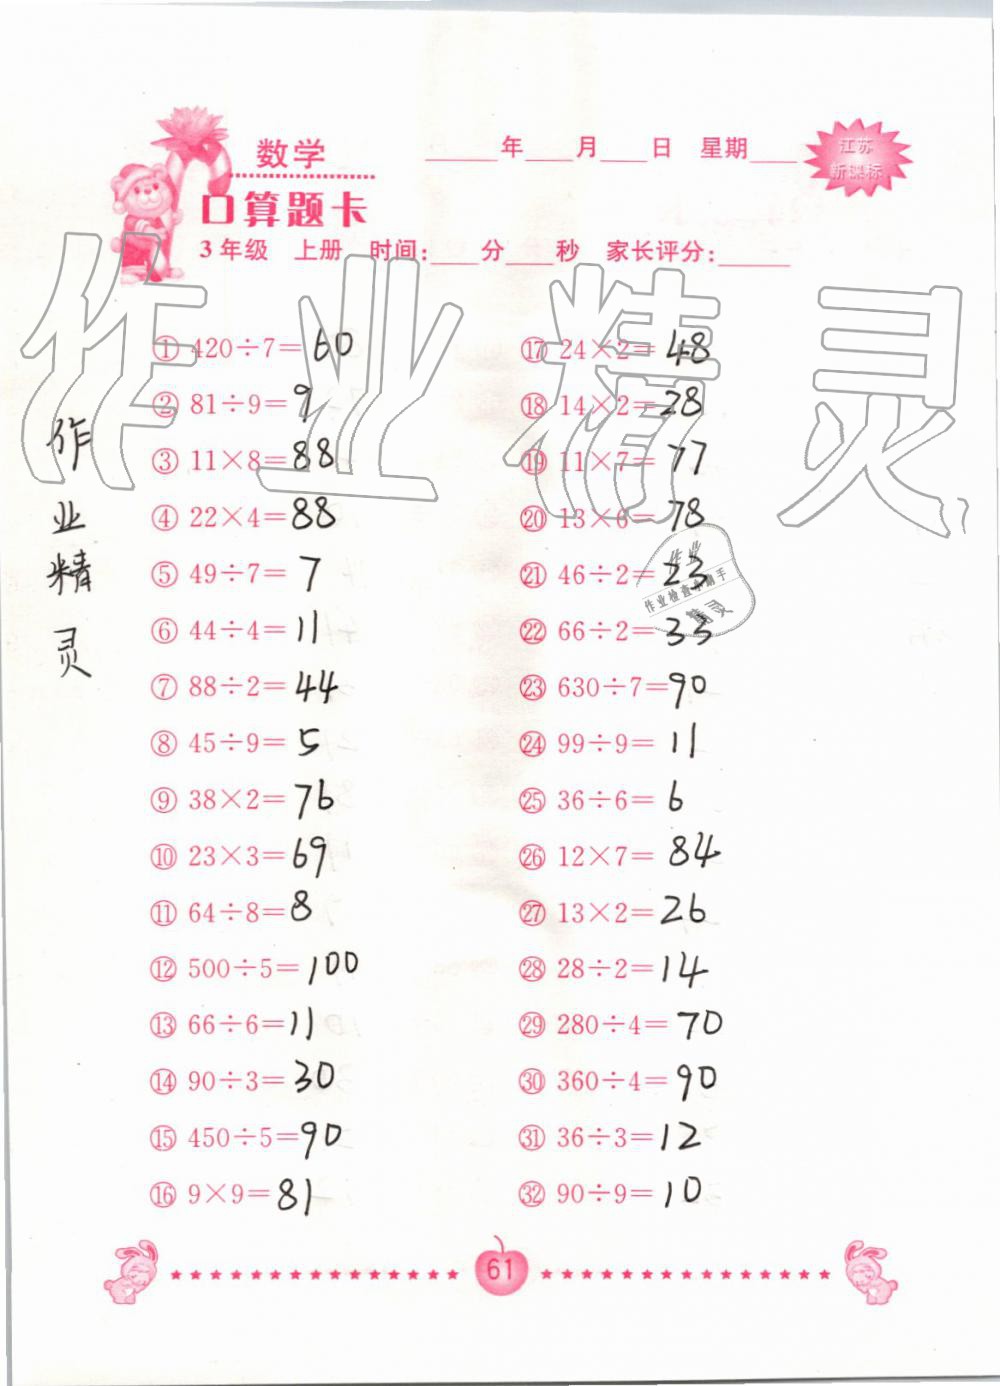 数学
____年____月____日 星期____
江苏
新课标
口算题卡
3年级 上册 时间:____分____秒 家长评分:______
作业精灵
① 420÷7=60
② 81÷9=9
③ 11×8=88
④ 22×4=88
⑤ 49÷7=7
⑥ 44÷4=11
⑦ 88÷2=44
⑧ 45÷9=5
⑨ 38×2=76
⑩ 23×3=69
⑪ 64÷8=8
⑫ 500÷5=100
⑬ 66÷6=11
⑭ 90÷3=30
⑮ 450÷5=90
⑯ 9×9=81
⑰ 24×2=48
⑱ 14×2=28
⑲ 11×7=77
⑳ 13×6=78
㉑ 46÷2=23
㉒ 66÷2=33
㉓ 630÷7=90
㉔ 99÷9=11
㉕ 36÷6=6
㉖ 12×7=84
㉗ 13×2=26
㉘ 28÷2=14
㉙ 280÷4=70
㉚ 360÷4=90
㉛ 36÷3=12
㉜ 90÷9=10
作业精灵
作业
作业检查小助手
精灵
61